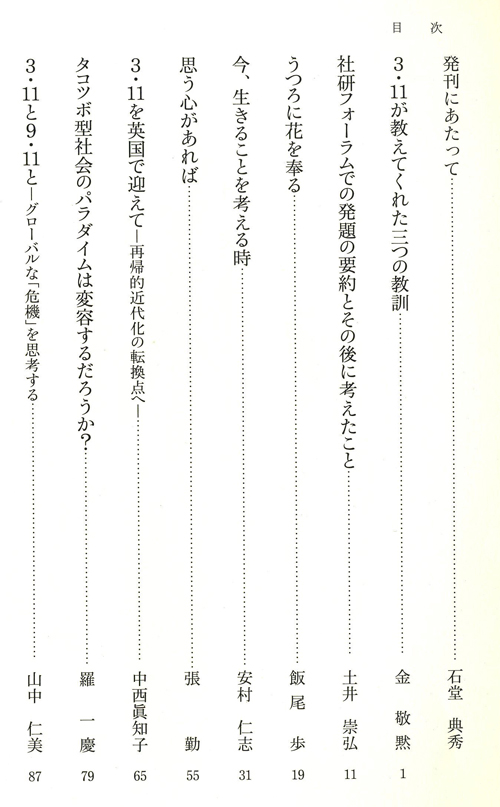 目次
発刊にあたって……石堂 典秀
3・11が教えてくれた三つの教訓……金 敬黙 1
社研フォーラムでの発題の要約とその後に考えたこと……土井 崇弘 11
うつろに花を奉る……飯尾 歩 19
今、生きることを考える時……安村 仁志 31
思う心があれば……張 勤 55
3・11を英国で迎えて―再帰的近代化の転換点へ―……中西眞知子 65
タコツボ型社会のパラダイムは変容するだろうか？……羅 一慶 79
3・11と9・11と―グローバルな「危機」を思考する……山中 仁美 87